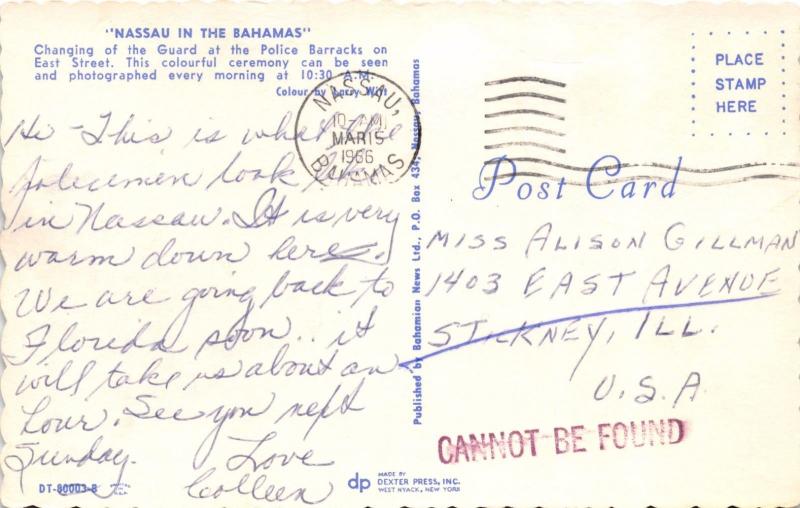 "NASSAU IN THE BAHAMAS"
Changing of the Guard at the Police Barracks on
East Street. This colourful ceremony can be seen
and photographed every morning at 10:30 A.M.
Colour by Larry Witt
Hi - This is what the
policemen look like
in Nassau. It is very
warm down here.
We are going back to
Florida soon.. it
will take us about an
hour. See you next
Sunday. Love
Colleen
DT-80003-B
NASSAU,
10-AM
MAR 15
1966
BAHAMAS
Published by Bahamian News Ltd., P.O. Box 434, Nassau, Bahamas
PLACE
STAMP
HERE
Post Card
MISS ALISON GILLMAN
1403 EAST AVENUE
STICKNEY, ILL.
U.S.A
CANNOT BE FOUND
dp
MADE BY
DEXTER PRESS, INC.
WEST NYACK, NEW YORK